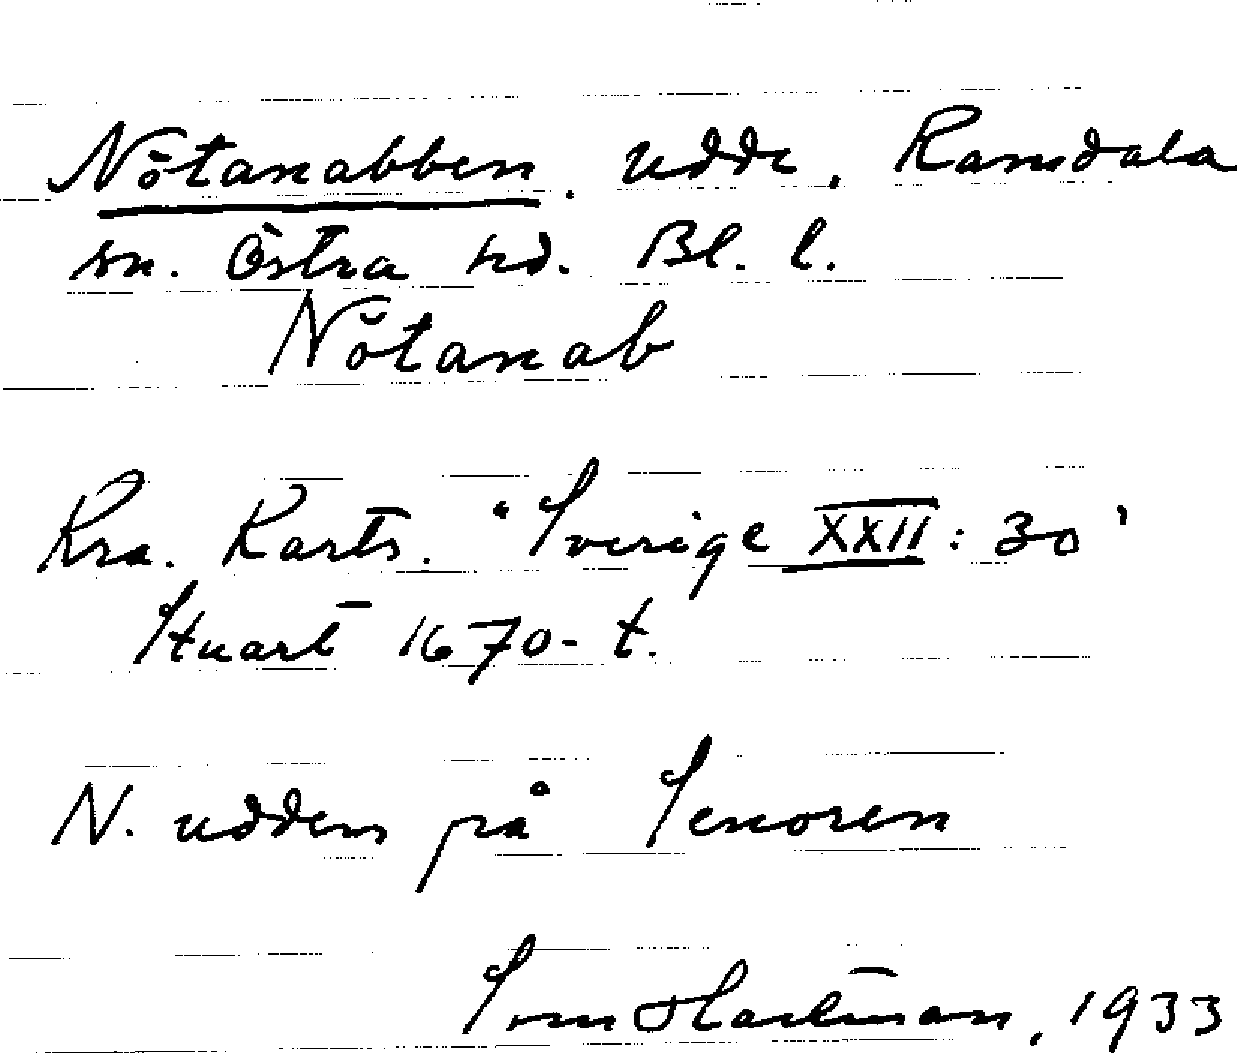 Nötanabben. udde, Ramdala
sn. Östra hd. Bl. l.
Nötanab
Kra. Karts. "Sverige XXII: 30"
Stuart 1670-t.
N. udden på Senoren
Hartman, 1933